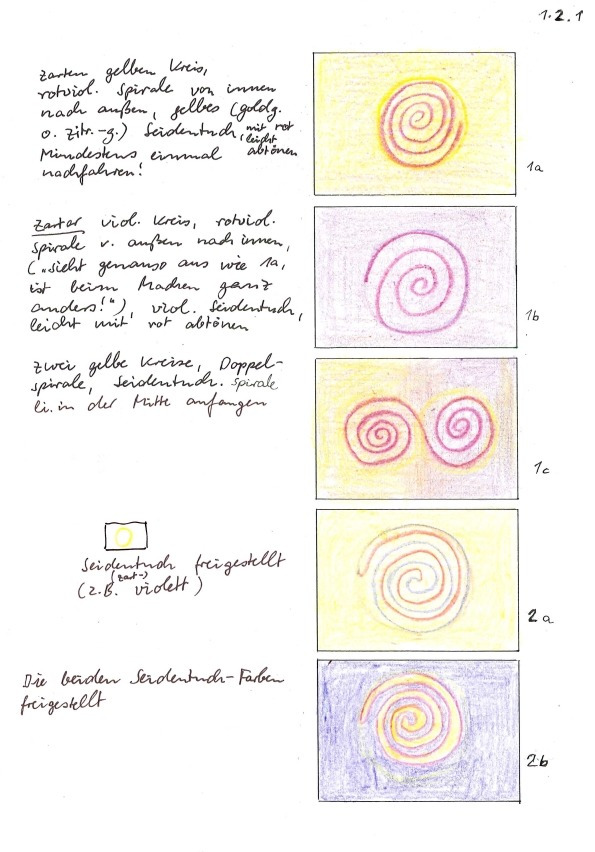 1.2.1
zarten gelben Kreis,
rotviol. Spirale von innen
nach außen, gelbes (goldg.
o. Zitr.-g.) Seidentuch, mit rot
leicht
Mindestens einmal abtönen
nachfahren!
1a
zarter viol. Kreis, rotviol.
Spirale v. außen nach innen,
("sieht genauso aus wie 1a,
ist beim Machen ganz
anders!"), viol. Seidentuch,
leicht mit rot abtönen
1b
Zwei gelbe Kreise, Doppel-
spirale, Seidentuch. Spirale
li. in der Mitte anfangen
1c
Seidentuch freigestellt
(zart-)
(z.B. violett)
2a
Die beiden Seidentuch-Farben
freigestellt
2b